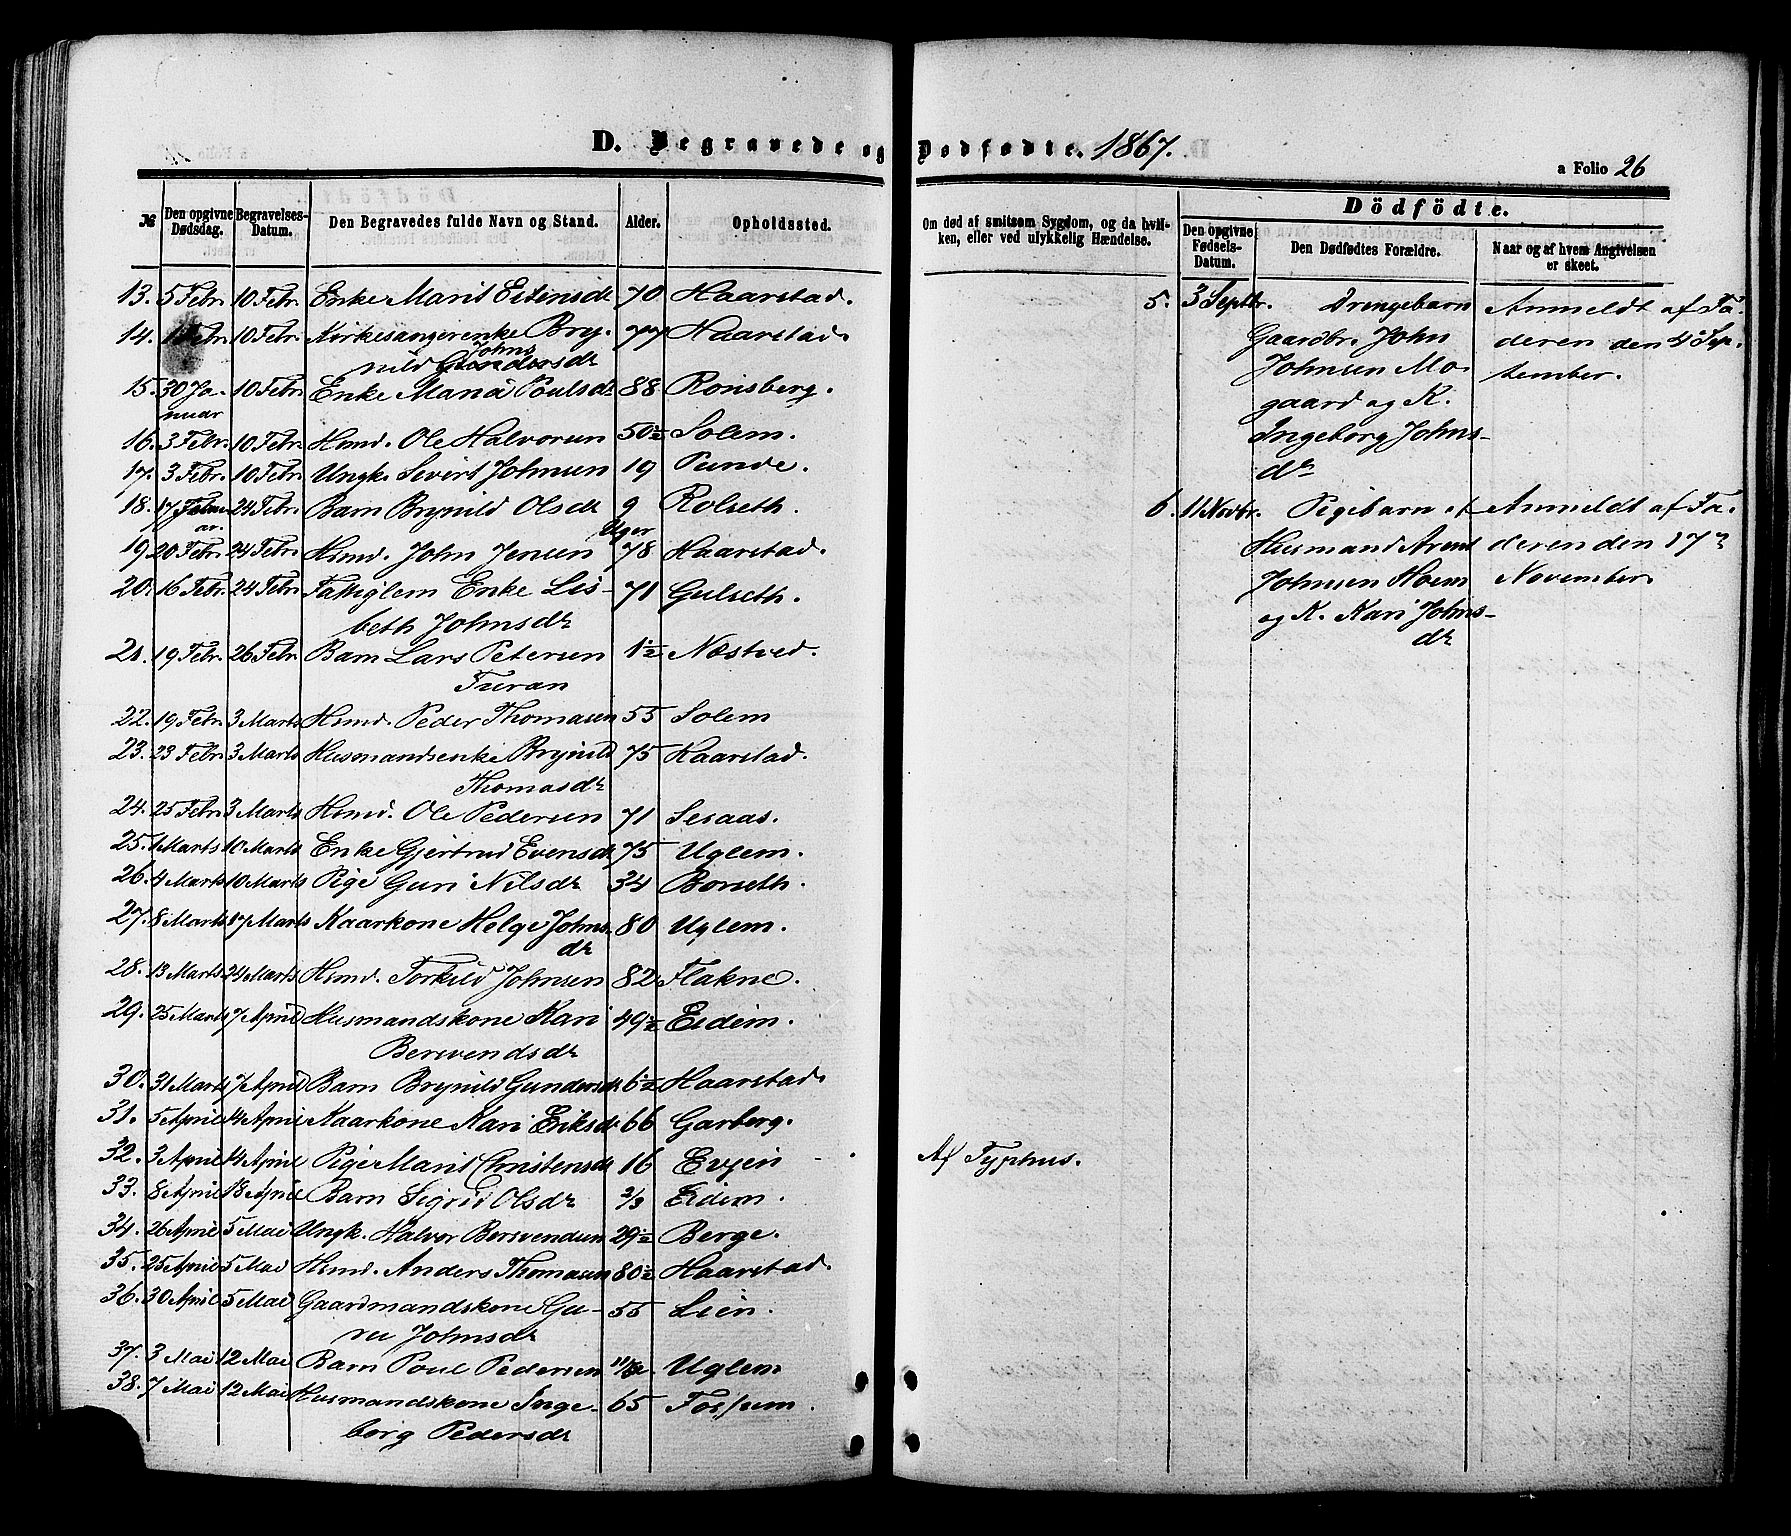 D. Begravede og Dødfødte. 1867.
a Folio 26
№ Den opgivne Dødsdag. Begravelses-Datum. Den Begravedes fulde Navn og Stand. Alder. Opholdssted.
13. 5 Febr. 10 Febr. Enke Marit Estensdr 70 Haarstad.
14. Febr. 10 Febr. Kirkesangerenke Bry- 77 Haarstad.
Johns
nild Gundersdr
15. 30 Ja- 10 Febr. Enke Maria Poulsdr 88 Ronsberg.
nuar
16. 3 Febr. 10 Febr. Hmd. Ole Halvorsen 50½ Solem.
17. 3 Febr. 10 Febr. Ungk. Sivert Johnsen 19 Punde.
18. 17 Febru- 24 Febr. Barn Brynild Olsdr 9 Rolseth.
ar. Uger
19. 20 Febr. 24 Febr. Hsmd. John Jensen 78 Haarstad.
20. 16 Febr. 24 Febr. Fattiglem Enke Lis- 71 Gulseth.
beth Johnsdr
21. 19 Febr. 26 Febr. Barn Lars Petersen 1½ Næstved.
Furan
22. 19 Febr. 3 Marts Hsmd. Peder Thomasen 55 Solem
23. 23 Febr. 3 Marts Husmandsenke Brynild 75 Haarstad.
Thomasdr
24. 25 Febr. 3 Marts Hsmd. Ole Pedersen 71 Sesaas.
25. 1 Marts 10 Marts Enke Gjertrud Evensdr 75 Uglem.
26. 4 Marts 10 Marts Pige Guri Nilsdr 34 Borseth.
27. 8 Marts 17 Marts Kaarkone Helge Johns- 80 Uglem.
dr
28. 13 Marts 24 Marts Hsmd. Torkild Johnsen 82 Flakne.
29. 25 Marts 7 April Husmandskone Kari 49½ Eidem.
Bersvendsdr
30. 31 Marts 7 April Barn Brynild Gundersdr 6½ Haarstad.
31. 5 April 14 April Kaarkone Kari Eriksdr 66 Garberg.
32. 3 April 14 April Pige Marit Christensdr 16 Evjen
33. 8 April 18 April Barn Sigrid Olsdr 2/3 Eidem.
34. 26 April 5 Mai Ungk. Halvor Bersvendsen 29½ Berge.
35. 25 April 5 Mai Hsmd. Anders Thomasen 80½ Haarstad.
36. 30 April 5 Mai Gaardmandskone Gu- 55 Lien.
ru Johnsdr
37. 3 Mai 12 Mai Barn Poul Pedersen 11/12 Uglem
38. 7 Mai 12 Mai Husmandskone Inge- 65 Fossum.
borg Pedersdr
Om død af smitsom Sygdom, og da hvil-
ken, eller ved ulykkelig Hændelse.
Af Typhus.
Dödfödte.
Den opgivne Fødsels-Datum. Den Dødfødtes Forældre. Naar og af hvem Angivelsen er skeet.
5. 3 Septbr. Drengebarn Anmeldt af Fa-
Gaardbr. John deren den 4 Sep-
Johnsen Mo- tember.
gaard og K.
Ingeborg Johns-
dr
6. 11 Novbr. Pigebarn af Anmeldt af Fa-
Husmand Arent deren den 17
Johnsen Moem November.
og K. Kari Johns-
dr